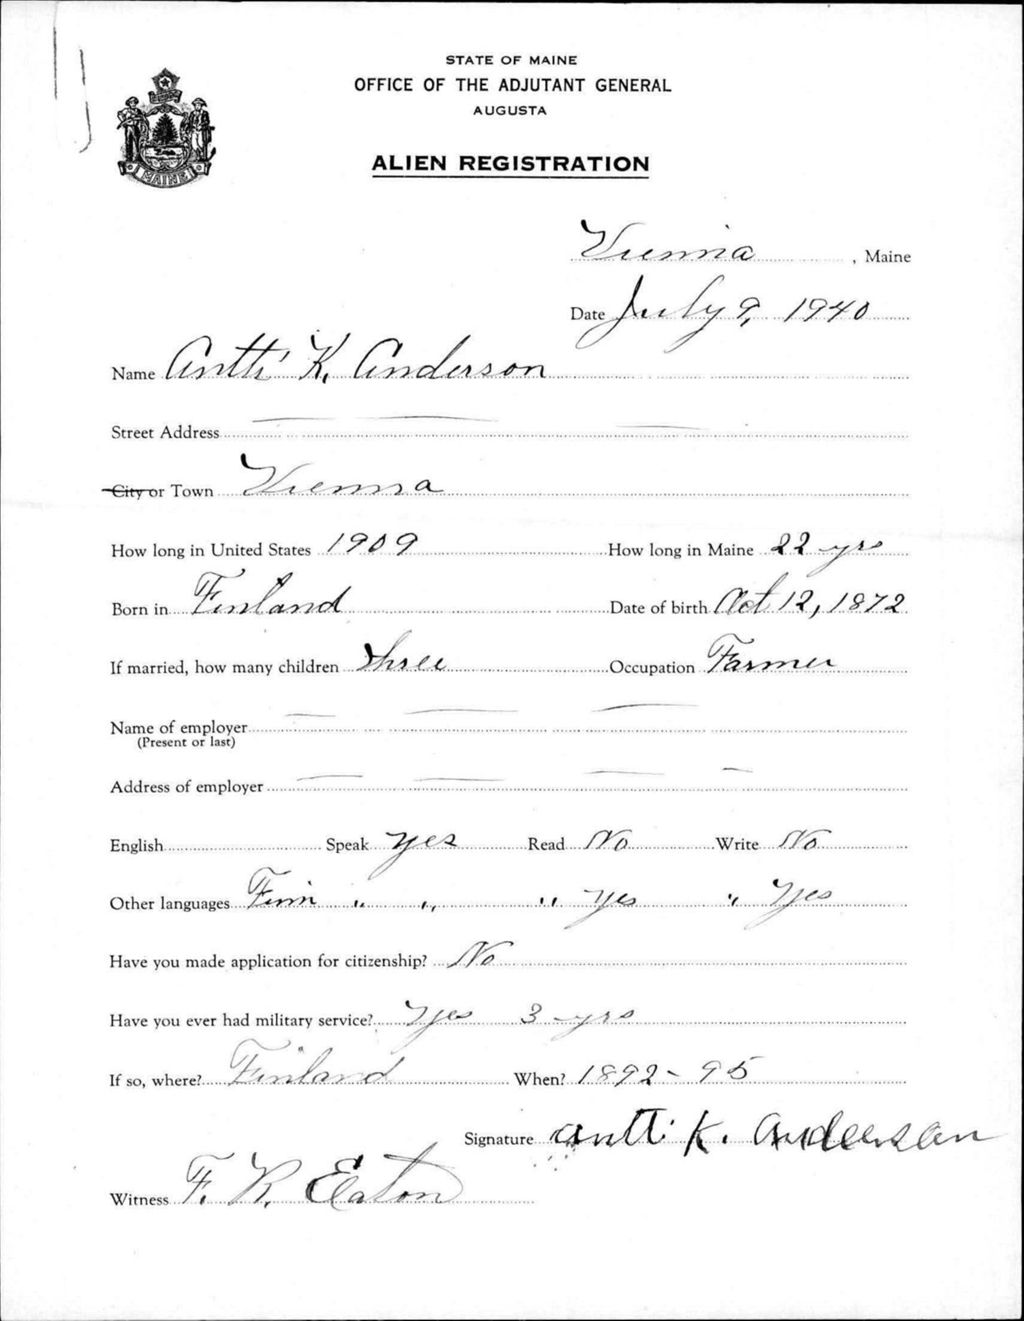 STATE OF MAINE
OFFICE OF THE ADJUTANT GENERAL
AUGUSTA
ALIEN REGISTRATION
MAINE
Vienna, Maine
Date July 9, 1940
Name Antti K. Anderson
Street Address
City or Town Vienna
How long in United States 1909 How long in Maine 22 yrs
Born in Finland Date of birth Oct 12, 1872
If married, how many children three Occupation Farmer
Name of employer
(Present or last)
Address of employer
English Speak yes Read No Write No
Other languages Finn " " " yes " yes
Have you made application for citizenship? No
Have you ever had military service? yes 3 yrs
If so, where? Finland When? 1892-95
Signature Antti K. Anderson
Witness F. R. Eaton